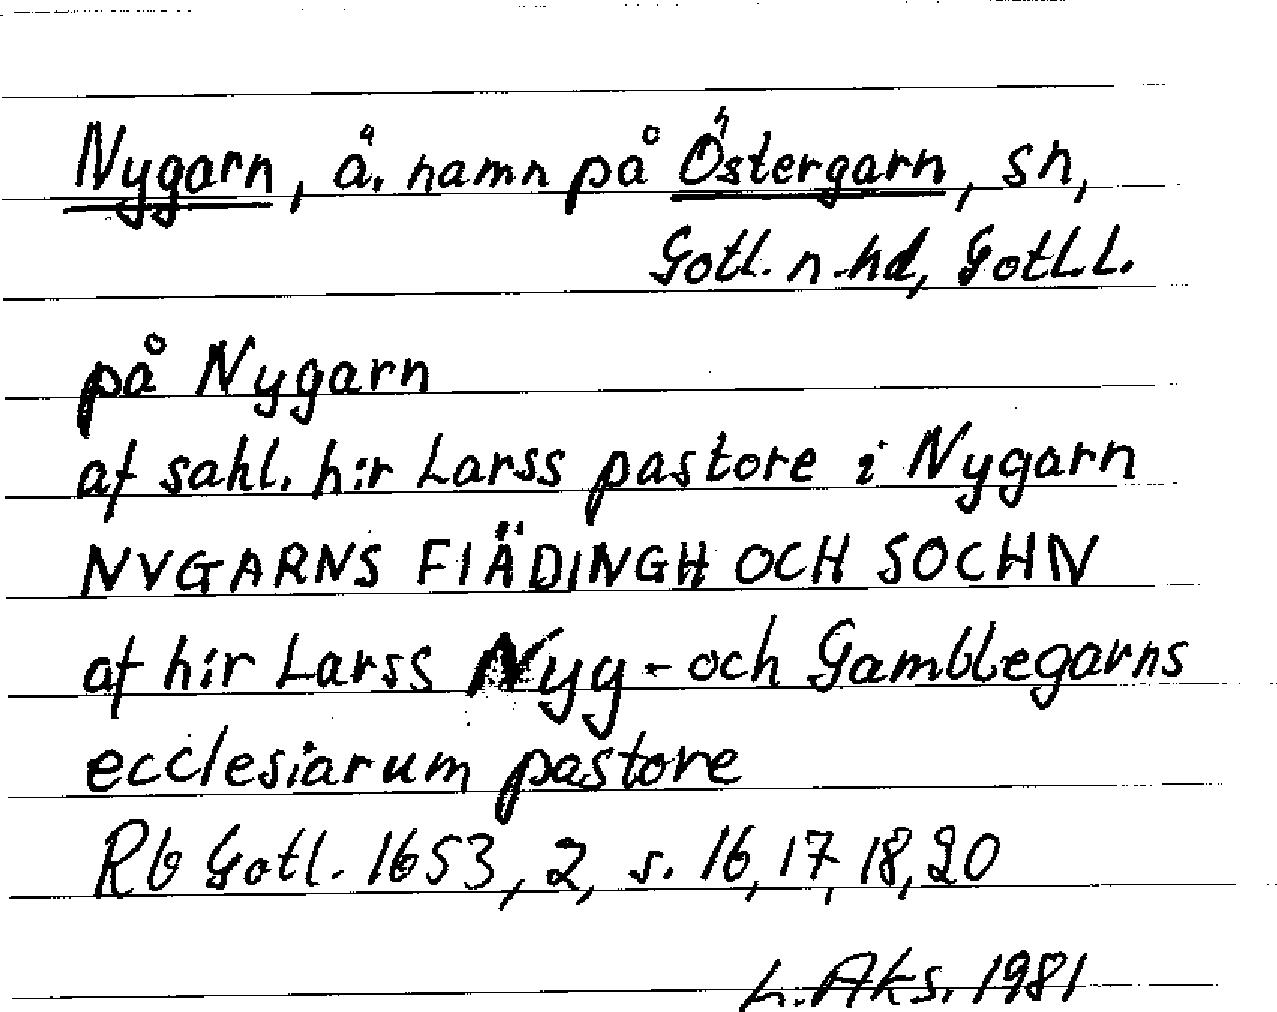 Nygarn, ä. namn på Östergarn, sn,
Gotl. n. hd, Gotl. l.
på Nygarn
af sahl. h:r Larss pastore i Nygarn
NYGARNS FIÄDINGH OCH SOCHN
af h:r Larss Nyg- och Gamblegarns
ecclesiarum pastore
Rb Gotl. 1653, 2, s. 16, 17, 18, 20
L. Aks. 1981